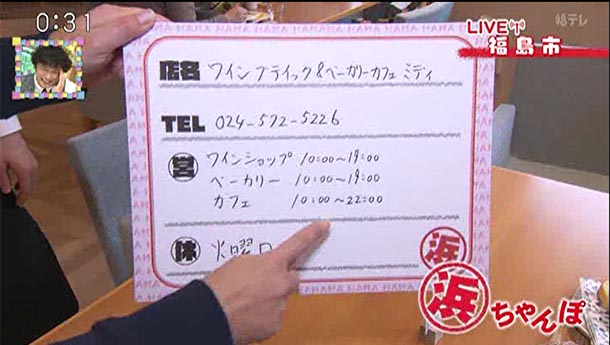 0:31
福テレ
LIVE
福島市
店名 ワインブティック&ベーカリーカフェ ミディ
TEL 024-572-5226
営 ワインショップ 10:00〜19:00
ベーカリー 10:00〜19:00
カフェ 10:00〜22:00
休 火曜日
浜
浜ちゃんぽ
HAMA HAMA HAMA HAMA HAMA HAMA HAMA